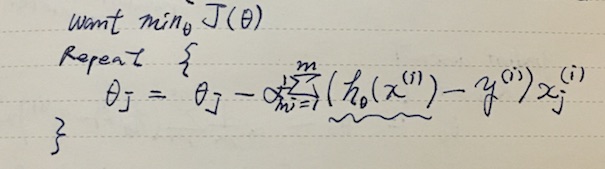 want min_θ J(θ)
Repeat {
θ_J = θ_J - α 1/m Σ_{i=1}^{m} (h_θ(x^{(i)}) - y^{(i)}) x_j^{(i)}
}